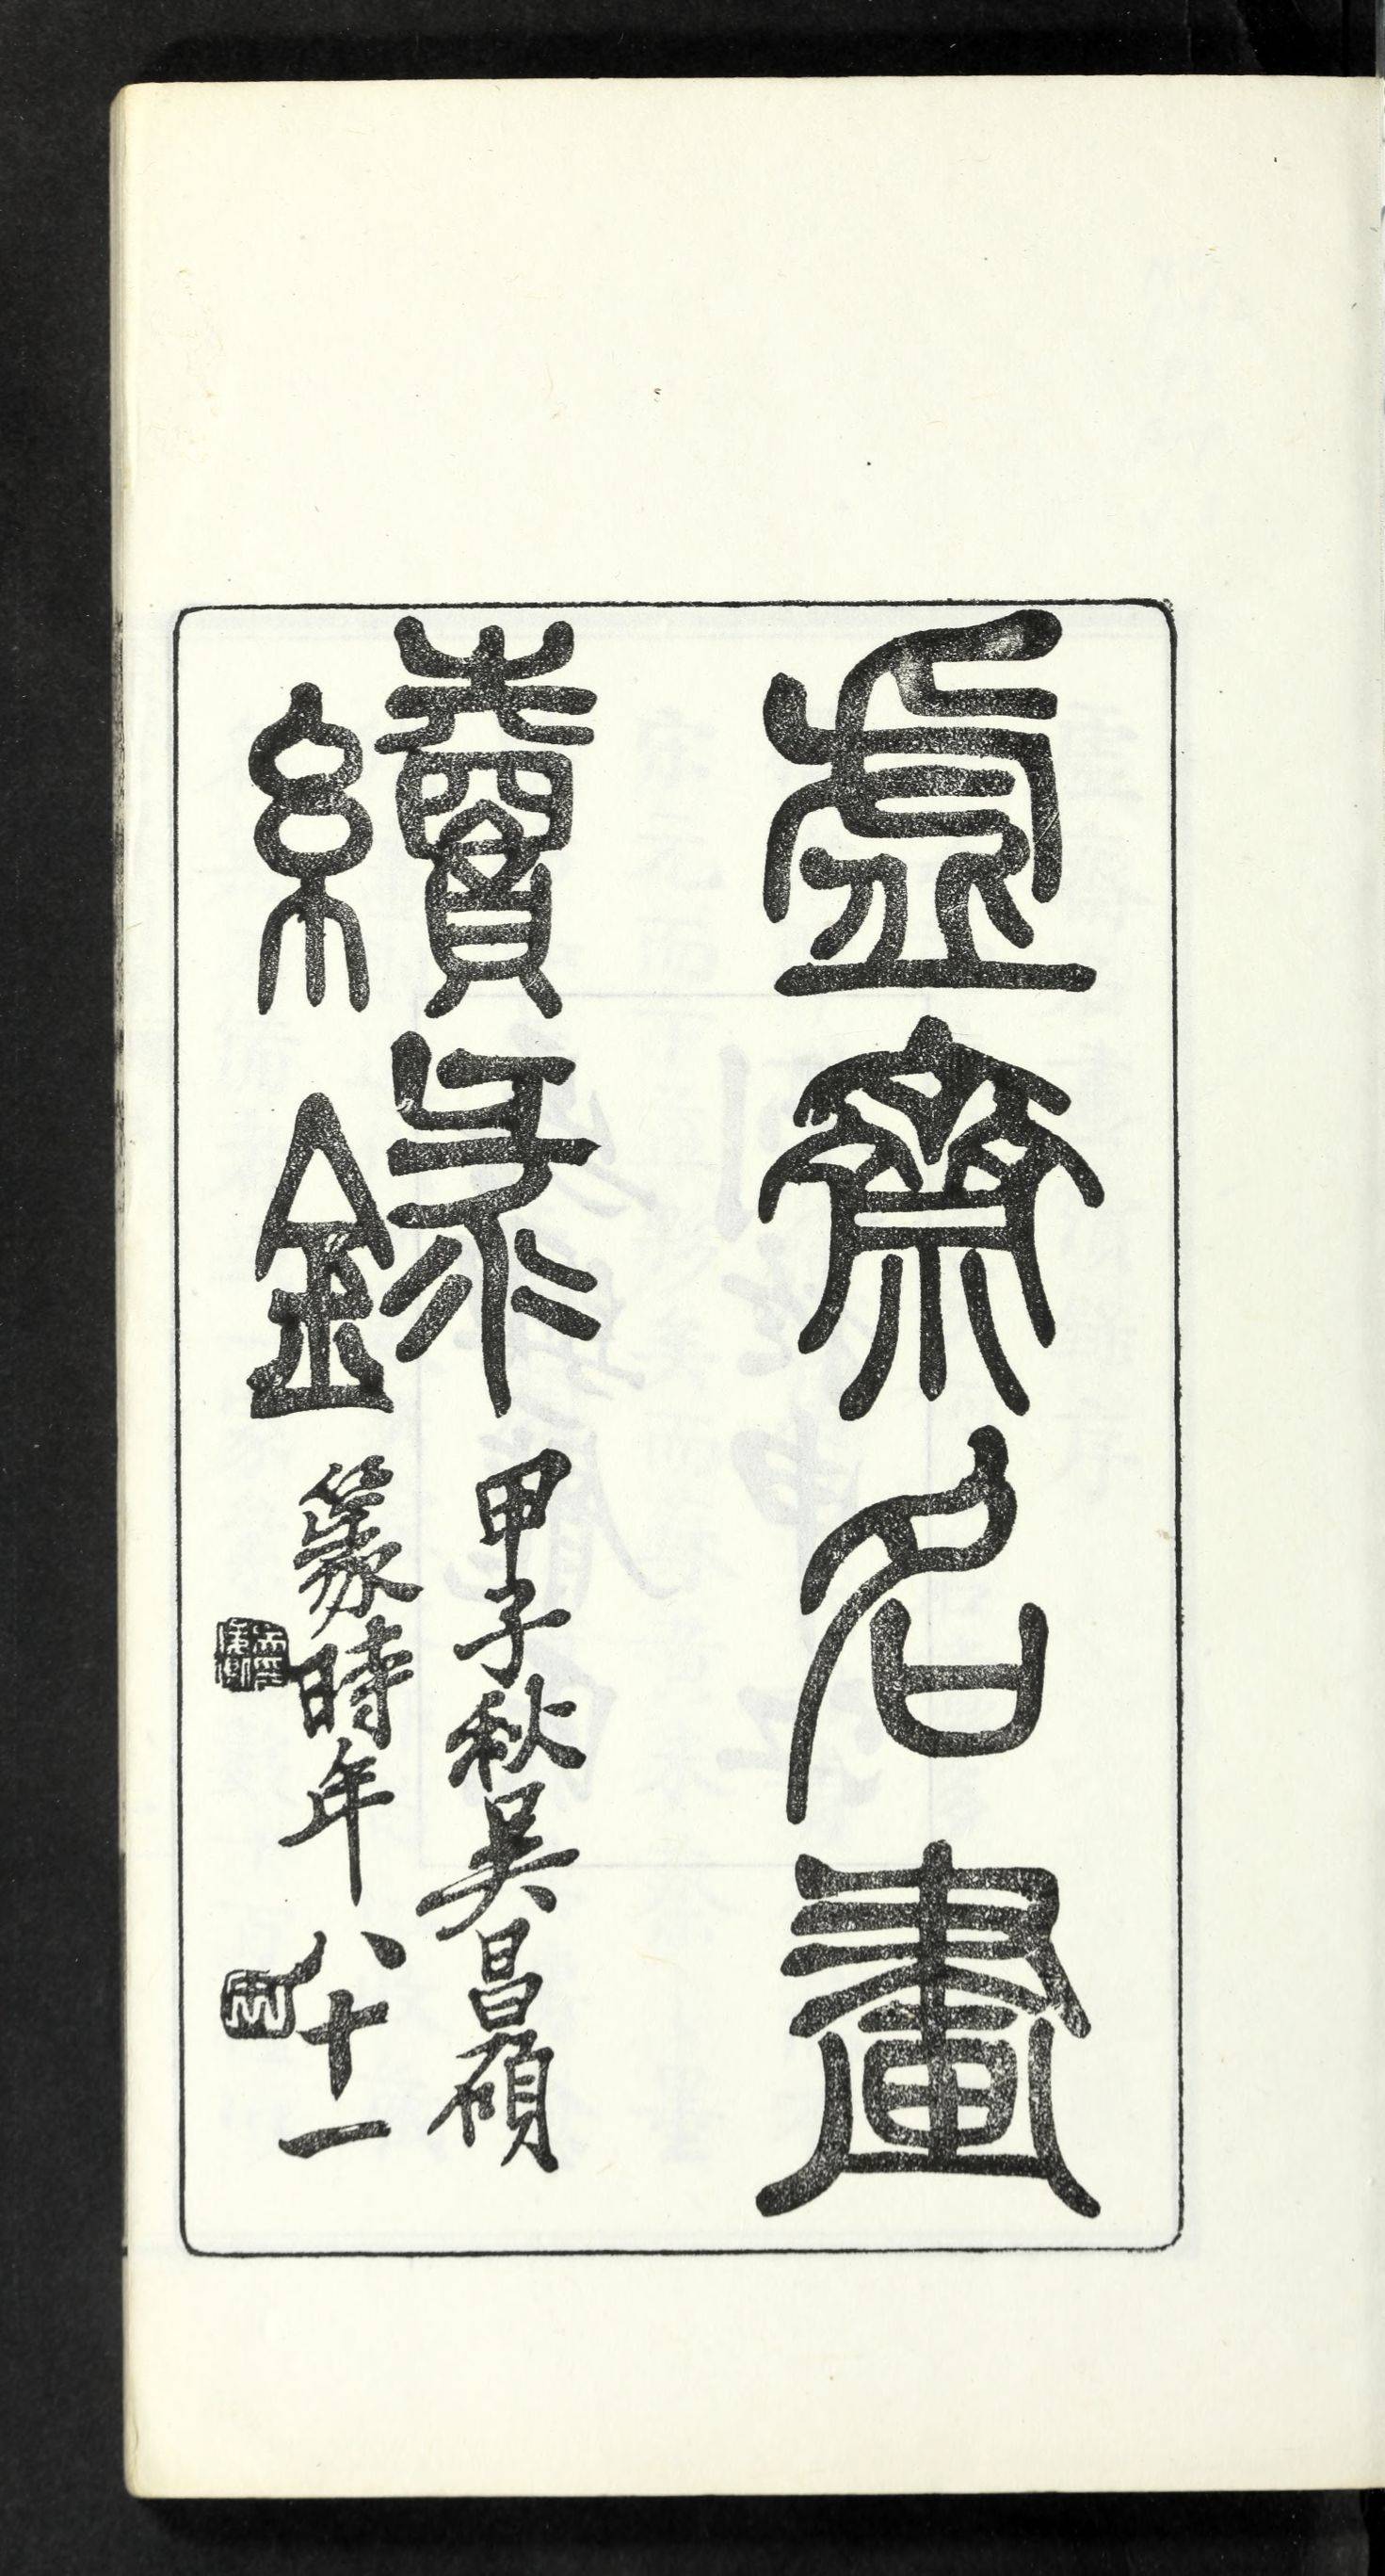 虛齋名畫
續錄
甲子秋吳昌碩
篆時年八十一